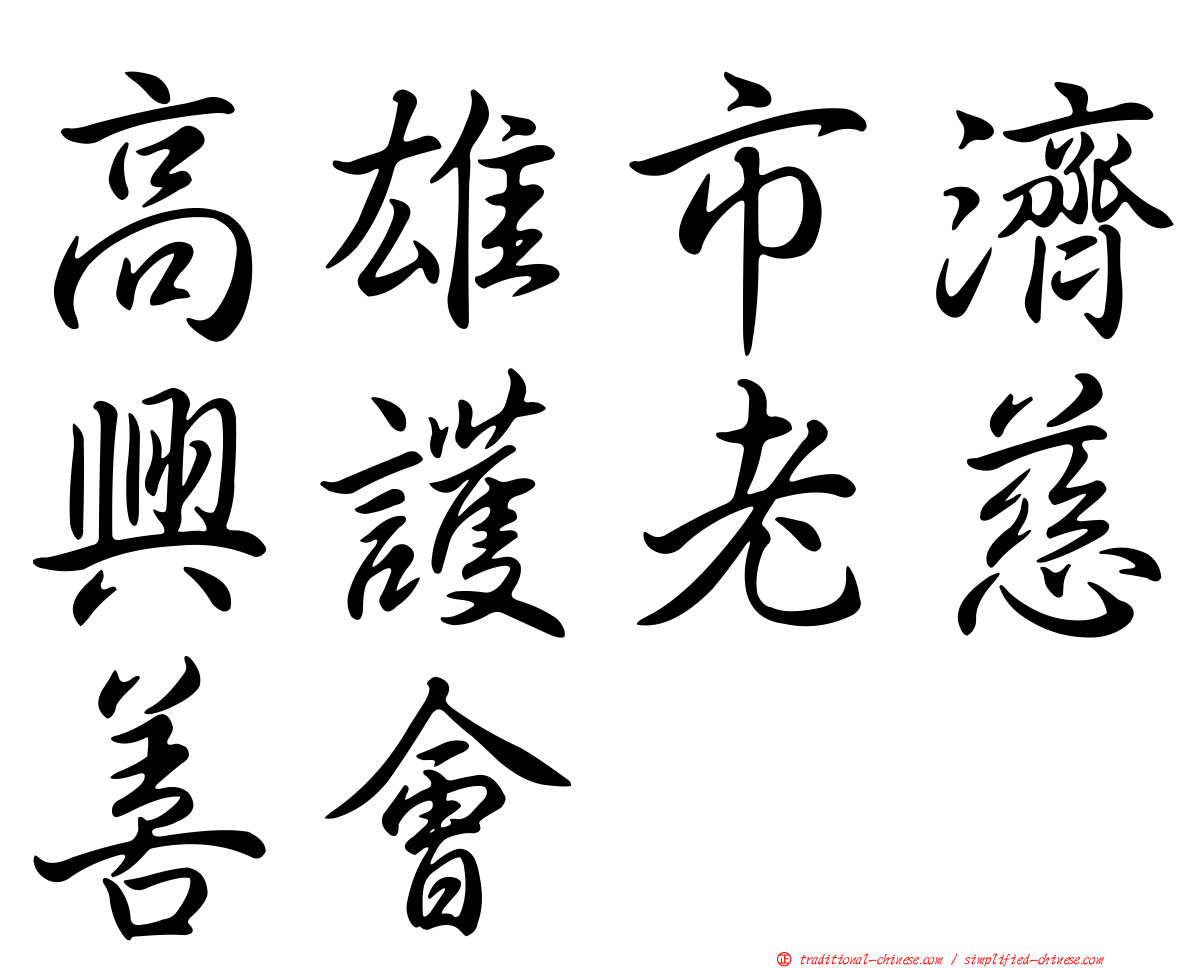 高雄市濟
興護老慈
善會
正 traditional-chinese.com / simplified-chinese.com